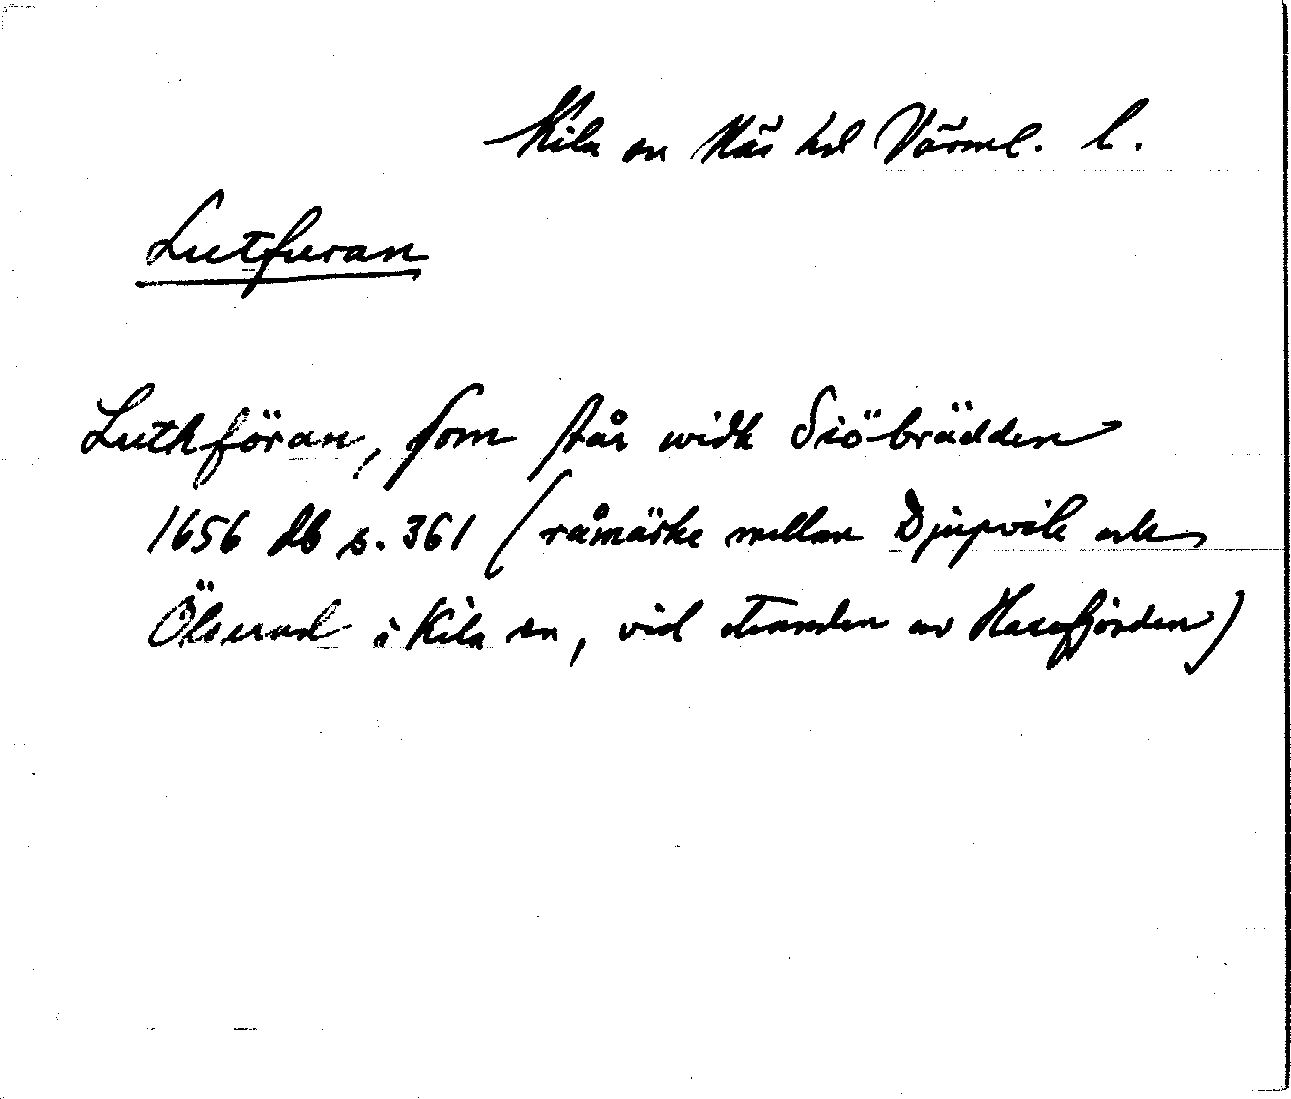 Kila sn Näs hd Värml. l.
Lutfuran
Luthföran, som står widh Siöbrädden
1656 db s. 361 (råmärke mellan Djupvik och
Ölserud i Kila sn, vid stranden av Harefjorden)